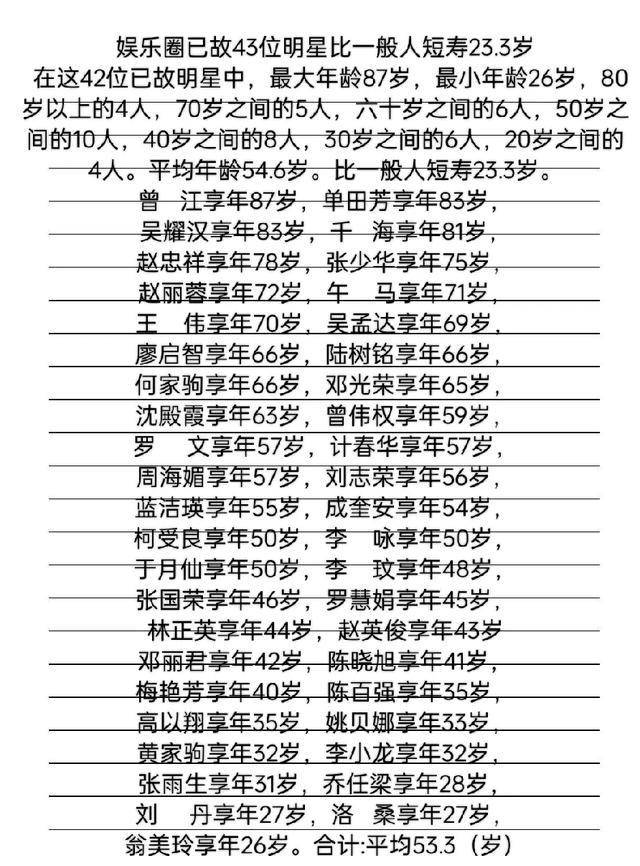 娱乐圈已故43位明星比一般人短寿23.3岁
在这42位已故明星中，最大年龄87岁，最小年龄26岁，80
岁以上的4人，70岁之间的5人，六十岁之间的6人，50岁之
间的10人，40岁之间的8人，30岁之间的6人，20岁之间的
4人。平均年龄54.6岁。比一般人短寿23.3岁。
曾 江享年87岁，单田芳享年83岁，
吴耀汉享年83岁，千 海享年81岁，
赵忠祥享年78岁，张少华享年75岁，
赵丽蓉享年72岁，午 马享年71岁，
王 伟享年70岁，吴孟达享年69岁，
廖启智享年66岁，陆树铭享年66岁，
何家驹享年66岁，邓光荣享年65岁，
沈殿霞享年63岁，曾伟权享年59岁，
罗 文享年57岁，计春华享年57岁，
周海媚享年57岁，刘志荣享年56岁，
蓝洁瑛享年55岁，成奎安享年54岁，
柯受良享年50岁，李 咏享年50岁，
于月仙享年50岁，李 玟享年48岁，
张国荣享年46岁，罗慧娟享年45岁，
林正英享年44岁，赵英俊享年43岁
邓丽君享年42岁，陈晓旭享年41岁，
梅艳芳享年40岁，陈百强享年35岁，
高以翔享年35岁，姚贝娜享年33岁，
黄家驹享年32岁，李小龙享年32岁，
张雨生享年31岁，乔任梁享年28岁，
刘 丹享年27岁，洛 桑享年27岁，
翁美玲享年26岁。合计:平均53.3（岁）